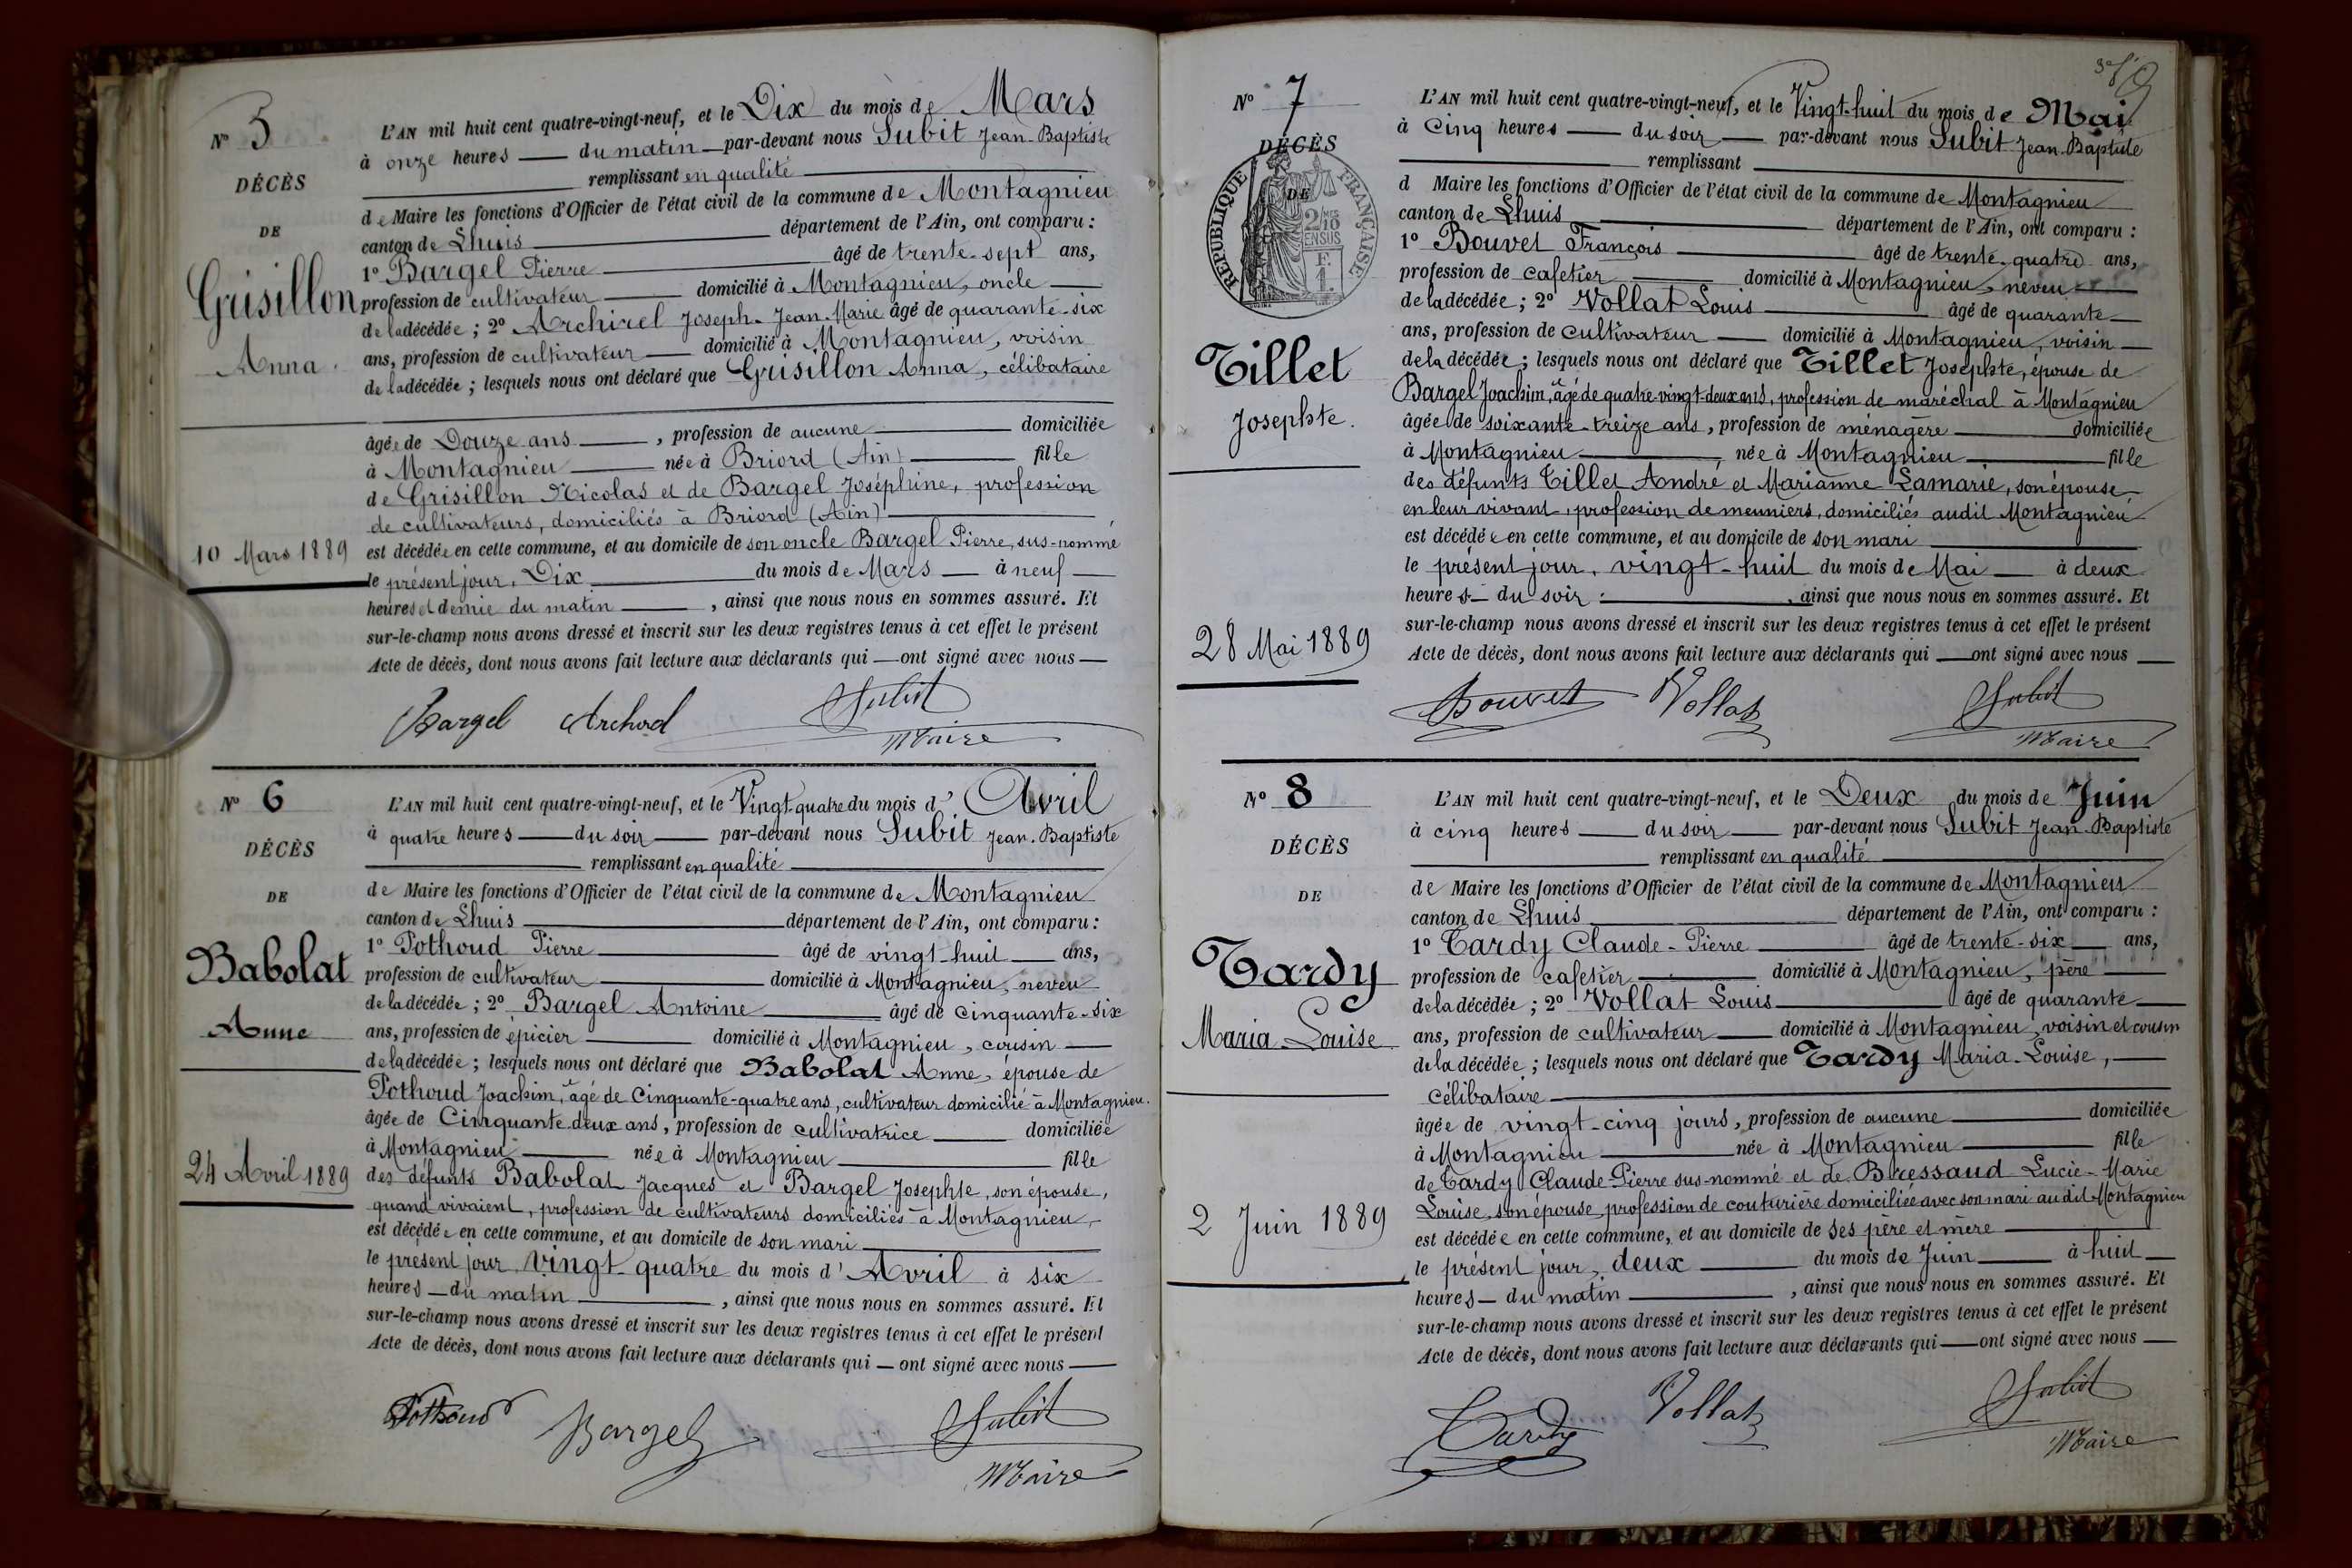 N° 5
DÉCÈS
DE
Grisillon
Anna
10 Mars 1889
L'AN mil huit cent quatre-vingt-neuf, et le Dix du mois de Mars
à onze heures du matin par-devant nous Subit Jean-Baptiste
remplissant en qualité
de Maire les fonctions d'Officier de l'état civil de la commune de Montagnieu
canton de Lhuis département de l'Ain, ont comparu :
1° Bargel Pierre âgé de trente-sept ans,
profession de cultivateur domicilié à Montagnieu, oncle
de la décédée ; 2° Archirel Joseph-Jean-Marie âgé de quarante-six
ans, profession de cultivateur domicilié à Montagnieu, voisin
de la décédée ; lesquels nous ont déclaré que Grisillon Anna, célibataire
âgée de Douze ans, profession de aucune domiciliée
à Montagnieu née à Briord (Ain) fille
de Grisillon Nicolas et de Bargel Joséphine, profession
de cultivateurs, domiciliés à Briord (Ain)
est décédée en cette commune, et au domicile de son oncle Bargel Pierre, sus-nommé
le présent jour, Dix du mois de Mars à neuf
heures et demie du matin, ainsi que nous nous en sommes assuré. Et
sur-le-champ nous avons dressé et inscrit sur les deux registres tenus à cet effet le présent
Acte de décès, dont nous avons fait lecture aux déclarants qui ont signé avec nous
Bargel Subit
Maire
N° 6
DÉCÈS
DE
Babolat
Anne
24 Avril 1889
L'AN mil huit cent quatre-vingt-neuf, et le Vingt-quatre du mois d' Avril
à quatre heures du soir par-devant nous Subit Jean-Baptiste
remplissant en qualité
de Maire les fonctions d'Officier de l'état civil de la commune de Montagnieu
canton de Lhuis département de l'Ain, ont comparu :
1° Pothoud Pierre âgé de vingt-huit ans,
profession de cultivateur domicilié à Montagnieu, neveu
de la décédée ; 2° Bargel Antoine âgé de cinquante-six
ans, profession de épicier domicilié à Montagnieu, cousin
de la décédée ; lesquels nous ont déclaré que Babolat Anne, épouse de
Pothoud Joachim, âgé de Cinquante-quatre ans, cultivateur domicilié à Montagnieu.
âgée de Cinquante deux ans, profession de cultivatrice domiciliée
à Montagnieu née à Montagnieu fille
des défunts Babolat Jacques et Bargel Josephte, son épouse,
quand vivaient, profession de cultivateurs domiciliés à Montagnieu,
est décédée en cette commune, et au domicile de son mari
le présent jour vingt-quatre du mois d' Avril à six
heures du matin, ainsi que nous nous en sommes assuré. Et
sur-le-champ nous avons dressé et inscrit sur les deux registres tenus à cet effet le présent
Acte de décès, dont nous avons fait lecture aux déclarants qui ont signé avec nous
Pothoud Bargel Subit
Maire
N° 7
DÉCÈS
DE
RÉPUBLIQUE FRANÇAISE
2/10 EN SUS
F. 1.
Tillet
Josephte.
28 Mai 1889
L'AN mil huit cent quatre-vingt-neuf, et le Vingt-huit du mois de Mai
à Cinq heures du soir par-devant nous Subit Jean-Baptiste
remplissant
d Maire les fonctions d'Officier de l'état civil de la commune de Montagnieu
canton de Lhuis département de l'Ain, ont comparu :
1° Bouvet François âgé de trente-quatre ans,
profession de cafetier domicilié à Montagnieu, neveu
de la décédée ; 2° Vollat Louis âgé de quarante
ans, profession de cultivateur domicilié à Montagnieu, voisin
de la décédée ; lesquels nous ont déclaré que Tillet Josephte, épouse de
Bargel Joachim, âgé de quatre-vingt-deux ans, profession de maréchal à Montagnieu
âgée de soixante-treize ans, profession de ménagère domiciliée
à Montagnieu, née à Montagnieu fille
des défunts Tillet André et Marianne Lamarie, son épouse
en leur vivant, profession de meuniers, domiciliés audit Montagnieu
est décédée en cette commune, et au domicile de son mari
le présent jour, vingt-huit du mois de Mai à deux
heures du soir, ainsi que nous nous en sommes assuré. Et
sur-le-champ nous avons dressé et inscrit sur les deux registres tenus à cet effet le présent
Acte de décès, dont nous avons fait lecture aux déclarants qui ont signé avec nous
Bouvet Vollat Subit
Maire
N° 8
DÉCÈS
DE
Tardy
Maria-Louise
2 Juin 1889
L'AN mil huit cent quatre-vingt-neuf, et le Deux du mois de Juin
à cinq heures du soir par-devant nous Subit Jean-Baptiste
remplissant en qualité
de Maire les fonctions d'Officier de l'état civil de la commune de Montagnieu
canton de Lhuis département de l'Ain, ont comparu :
1° Tardy Claude-Pierre âgé de trente-six ans,
profession de cafetier domicilié à Montagnieu, père
de la décédée ; 2° Vollat Louis âgé de quarante
ans, profession de cultivateur domicilié à Montagnieu, voisin et cousin
de la décédée ; lesquels nous ont déclaré que Tardy Maria-Louise,
célibataire
âgée de vingt-cinq jours, profession de aucune domiciliée
à Montagnieu née à Montagnieu fille
de Tardy Claude-Pierre sus-nommé et de Bressaud Lucie-Marie
Louise, son épouse, profession de couturière domiciliée avec son mari audit Montagnieu
est décédée en cette commune, et au domicile de ses père et mère
le présent jour, deux du mois de Juin à huit
heures du matin, ainsi que nous nous en sommes assuré. Et
sur-le-champ nous avons dressé et inscrit sur les deux registres tenus à cet effet le présent
Acte de décès, dont nous avons fait lecture aux déclarants qui ont signé avec nous
Tardy Vollat Subit
Maire